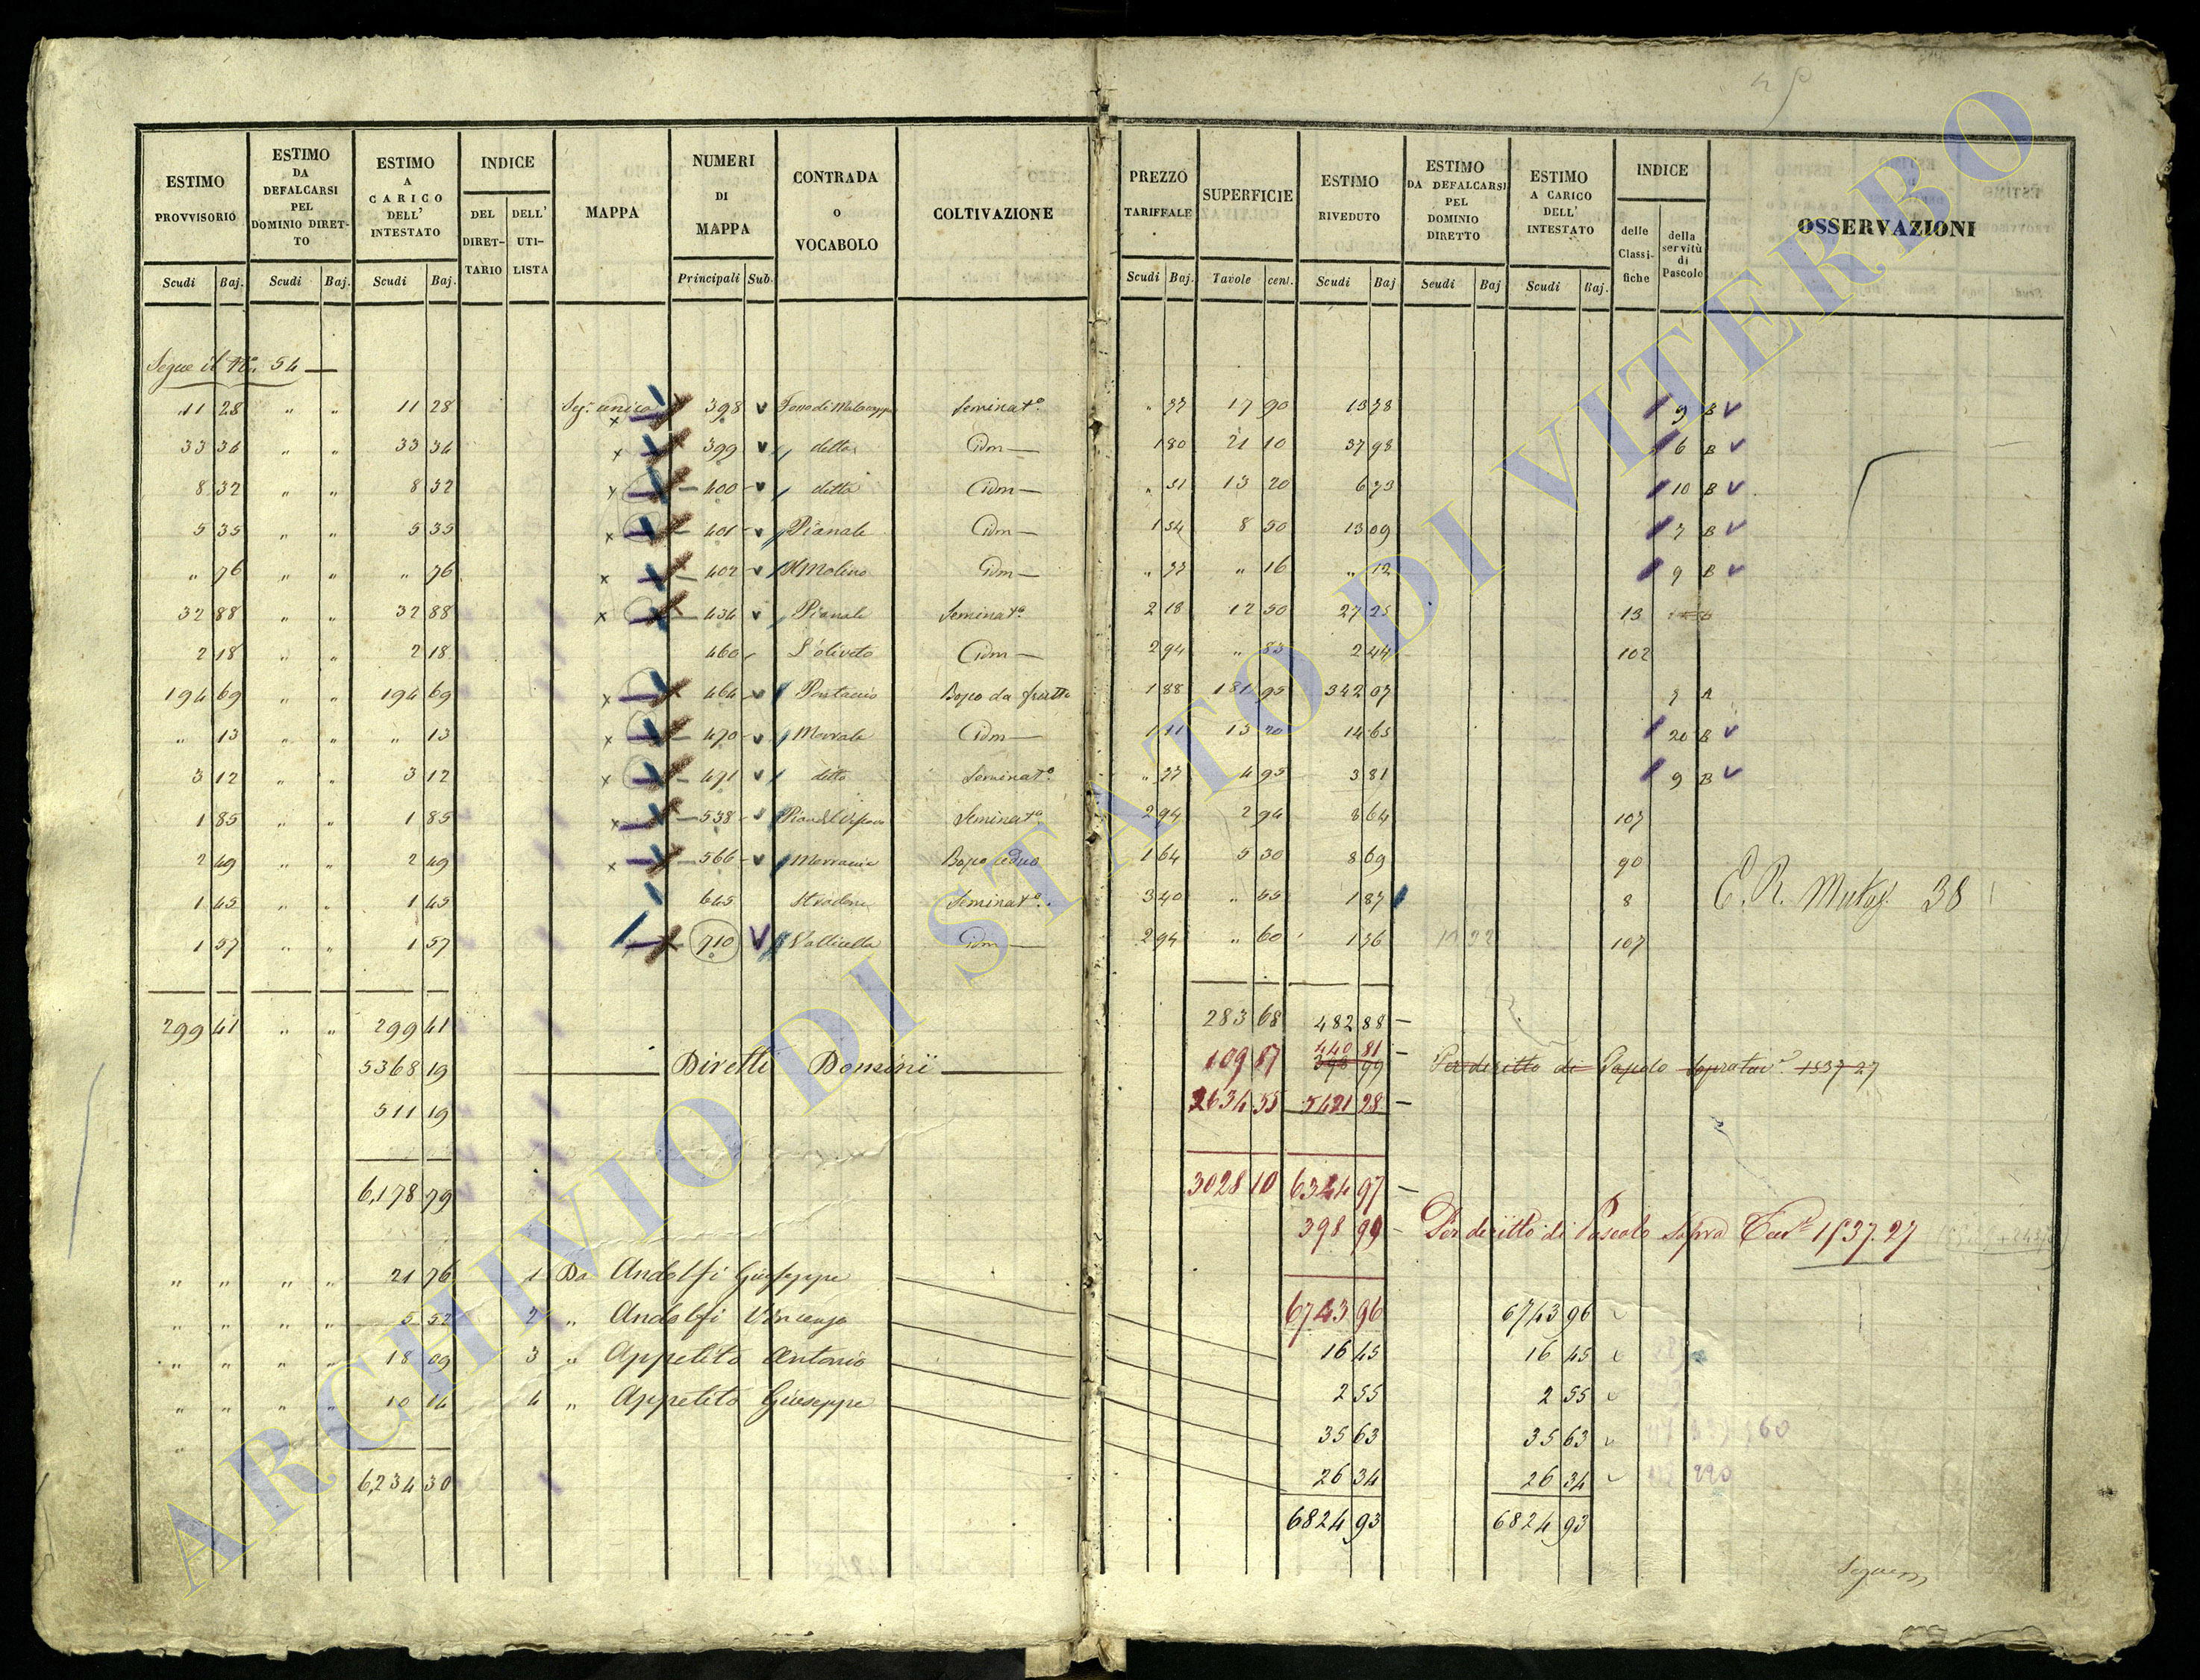 ESTIMO PROVVISORIO | ESTIMO DA DEFALCARSI PEL DOMINIO DIRETTO | ESTIMO A CARICO DELL' INTESTATO | INDICE | MAPPA | NUMERI DI MAPPA | CONTRADA O VOCABOLO | COLTIVAZIONE | PREZZO TARIFFALE | SUPERFICIE | ESTIMO RIVEDUTO | ESTIMO DA DEFALCARSI PEL DOMINIO DIRETTO | ESTIMO A CARICO DELL' INTESTATO | INDICE | OSSERVAZIONI
DEL DIRETTARIO | DELL' UTILISTA | delle Classifiche | della servitù di Pascolo
Scudi | Baj. | Scudi | Baj. | Scudi | Baj. | Principali | Sub. | Scudi | Baj. | Tavole | cent. | Scudi | Baj | Scudi | Baj | Scudi | Baj.
Segue il N.º 54
11 28 " " 11 28 398 Seminatº. " 77 17 90 13 78 9 B
33 34 " " 33 34 399 detta Idm 1 80 21 10 37 98 6 B
8 32 " " 8 32 400 detta Idm " 51 13 20 6 73 10 B
5 35 " " 5 35 401 Pianale Idm 1 54 8 50 13 09 7 B
" 76 " " " 76 402 Il Molino Idm " 77 " 16 " 12 9 B
32 88 " " 32 88 434 Pianale Seminatº 2 18 12 50 27 25 13
2 18 " " 2 18 460 L'oliveto Idm 2 94 " 83 2 44 102
194 69 " " 194 69 464 Bosco da frutto 1 88 181 95 342 07 A
" 13 " " " 13 470 Idm 1 11 13 20 14 65 20 B
3 12 " " 3 12 471 detto Seminatº. " 77 4 95 3 81 9 B
1 85 " " 1 85 538 Seminatº 2 94 2 94 8 64 107
2 49 " " 2 49 566 Bosco ceduo 1 64 5 30 8 69 90
1 45 " " 1 45 645 Stradone Seminatº. 3 40 " 55 1 87 8 E. R. 38
1 57 " " 1 57 710 Vallicella Idm 2 94 " 60 1 76 107
299 41 " " 299 41 283 68 482 88
5368 19 Diretti Dominii 109 87 440 81 398 99 Per diritto di Pascolo 1537 27
511 19 2634 55 5421 28
6,178 79 3028 10 6344 97
398 99 Per diritto di Pascolo sopra Tav.e 1537.27
" " " " 21 76 1 Da Andolfi Giuseppe 6743 96 6743 96
" " " " 5 52 2 " Andolfi Vincenzo 16 45 16 45
" " " " 18 09 3 " Appetito Antonio 2 55 2 55
" " " " 10 14 4 " Appetito Giuseppe 35 63 35 63
6,234 30 26 34 26 34
6824 93 6824 93
ARCHIVIO DI STATO DI VITERBO